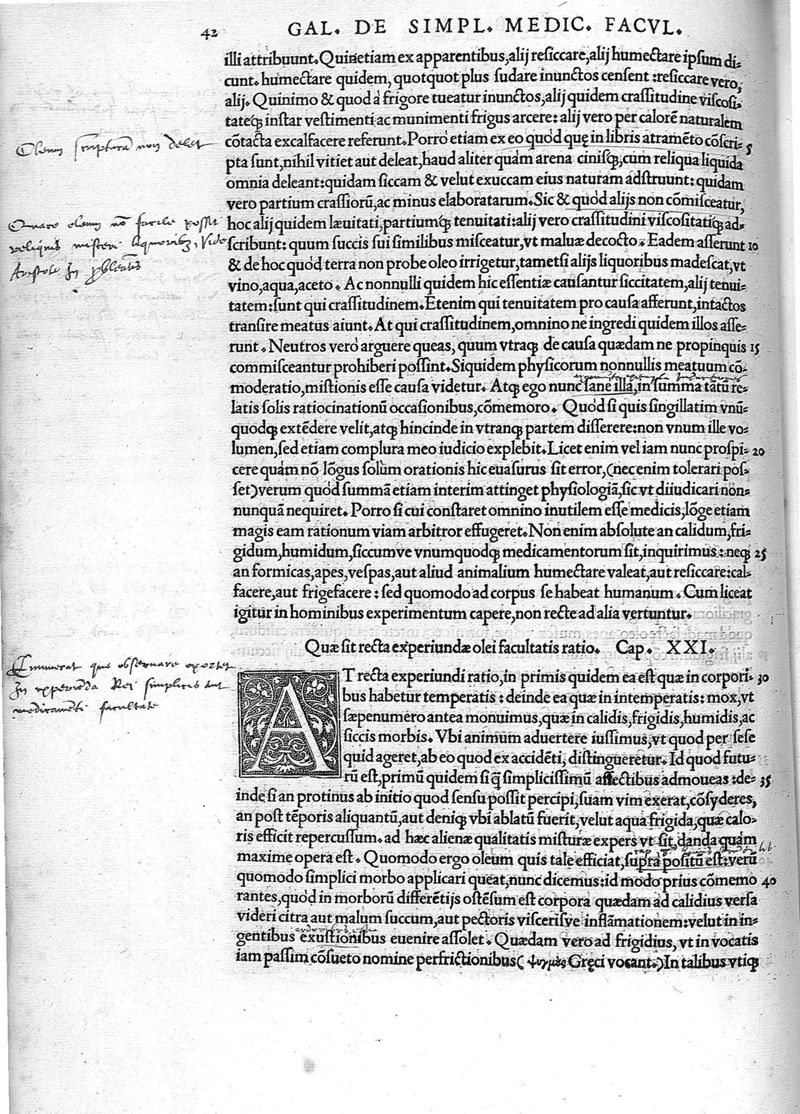 42 GAL. DE SIMPL. MEDIC. FACVL.
illi attribuunt. Quinetiam ex apparentibus, alij resiccare, alij humectare ipsum di-
cunt. humectare quidem, quotquot plus sudare inunctos censent: resiccare vero,
alij. Quinimo & quod à frigore tueatur inunctos, alij quidem crassitudine viscosi-
tateq́ꝫ instar vestimenti ac munimenti frigus arcere: alij vero per calorē naturalem
Oleum scripturā non delet
cōtacta excalfacere referunt. Porro etiam ex eo quòd quę in libris atramēto cōscri- 5
pta sunt, nihil vitiet aut deleat, haud aliter quàm arena cinisq́ꝫ, cum reliqua liquida
omnia deleant: quidam siccam & velut exuccam eius naturam adstruunt: quidam
vero partium crassiorū, ac minus elaboratarum. Sic & quòd alijs non cōmisceatur,
Quare oleum nō facile possit
hoc alij quidem læuitati, partiumq́ꝫ tenuitati: alij vero crassitudini viscositatiq́ꝫ ad-
reliquis misceri liquoribus, Vide
scribunt: quum succis sui similibus misceatur, vt maluæ decocto. Eadem asserunt 10
Aristote in problematis
& de hoc quòd terra non probe oleo irrigetur, tametsi alijs liquoribus madescat, vt
vino, aqua, aceto. Ac nonnulli quidem hic essentiæ causantur siccitatem, alij tenui-
tatem: sunt qui crassitudinem. Etenim qui tenuitatem pro causa afferunt, intactos
transire meatus aiunt. At qui crassitudinem, omnino ne ingredi quidem illos asse-
runt. Neutros vero arguere queas, quum vtraq́ꝫ de causa quædam ne propinquis 15
commisceantur prohiberi possint. Siquidem physicorum nonnullis meatuum cō-
moderatio, mistionis esse causa videtur. Atq́ꝫ ego nunc sane illa, in summa tātū re-
latis solis ratiocinationū occasionibus, cōmemoro. Quòd si quis singillatim vnū-
quodq́ꝫ extēdere velit, atq́ꝫ hincinde in vtranq́ꝫ partem disserere: non vnum ille vo-
lumen, sed etiam complura meo iudicio explebit. Licet enim vel iam nunc prospi- 20
cere quàm nō lōgus solùm orationis hic euasurus sit error, (nec enim tolerari pos-
set) verum quòd summā etiam interim attinget physiologiā, sic vt diiudicari non-
nunquā nequiret. Porro si cui constaret omnino inutilem esse medicis, lōge etiam
magis eam rationum viam arbitror effugeret. Non enim absolute an calidum, fri-
gidum, humidum, siccumve vnumquodq́ꝫ medicamentorum sit, inquirimus: neq́ꝫ 25
an formicas, apes, vespas, aut aliud animalium humectare valeat, aut resiccare: cal-
facere, aut frigefacere: sed quomodo ad corpus se habeat humanum. Cum liceat
igitur in hominibus experimentum capere, non recte ad alia vertuntur.
Quæ sit recta experiundæ olei facultatis ratio. Cap. XXI.
Enumerat que obseruare oportet
In experiūda Rei simplicis aut
medicamenti facultate
AT recta experiundi ratio, in primis quidem ea est quæ in corpori- 30
bus habetur temperatis: deinde ea quæ in intemperatis: mox, vt
sæpenumero antea monuimus, quæ in calidis, frigidis, humidis, ac
siccis morbis. Vbi animum aduertere iussimus, vt quod per sese
quid ageret, ab eo quod ex accidēti, distingueretur. Id quod futu-
rū est, primū quidem si q̄ simplicissimū affectibus admoueas: de- 35
inde si an protinus ab initio quod sensu possit percipi, suam vim exerat, cōsyderes,
an post tēporis aliquantū, aut deniq́ꝫ vbi ablatū fuerit, velut aqua frigida, quæ calo-
ris efficit repercussum. ad hæc alienæ qualitatis misturæ expers vt sit, danda quàm
maxime opera est. Quomodo ergo oleum quis tale efficiat, supra positū est: verū
quomodo simplici morbo applicari queat, nunc dicemus: id modo prius cōmemo 40
rantes, quòd in morborū differētijs ostēsum est corpora quædam ad calidius versa
videri citra aut malum succum, aut pectoris viscerisve inflāmationem: velut in in-
gentibus exustionibus euenire assolet. Quædam vero ad frigidius, vt in vocatis
iam passim cōsueto nomine perfrictionibus (ψυγμὸς Gręci vocant.) In talibus vtiq́ꝫ